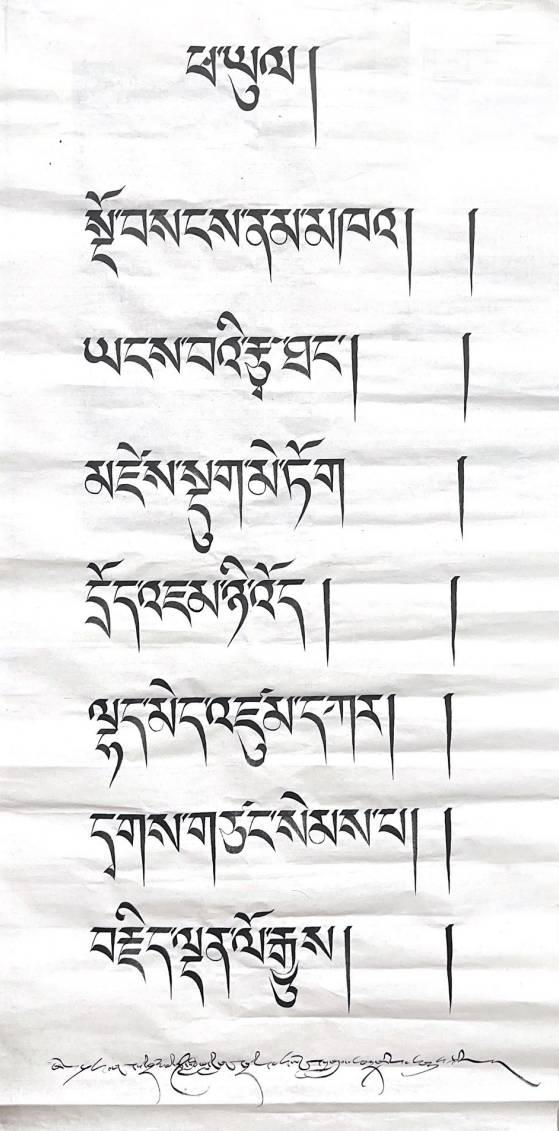 ཕ་ཡུལ།
སྔོ་བསངས་ནམ་མཁའ། །
ཡངས་བའི་རྩྭ་ཐང་། །
མཛེས་སྡུག་མེ་ཏོག །
དྲོད་འཇམ་ཉི་འོད། །
ལྷད་མེད་འཛུམ་དཀར། །
དྭགས་གཙང་སེམས་པ། །
བརྗིད་ལྡན་ལོ་རྒྱུས། །